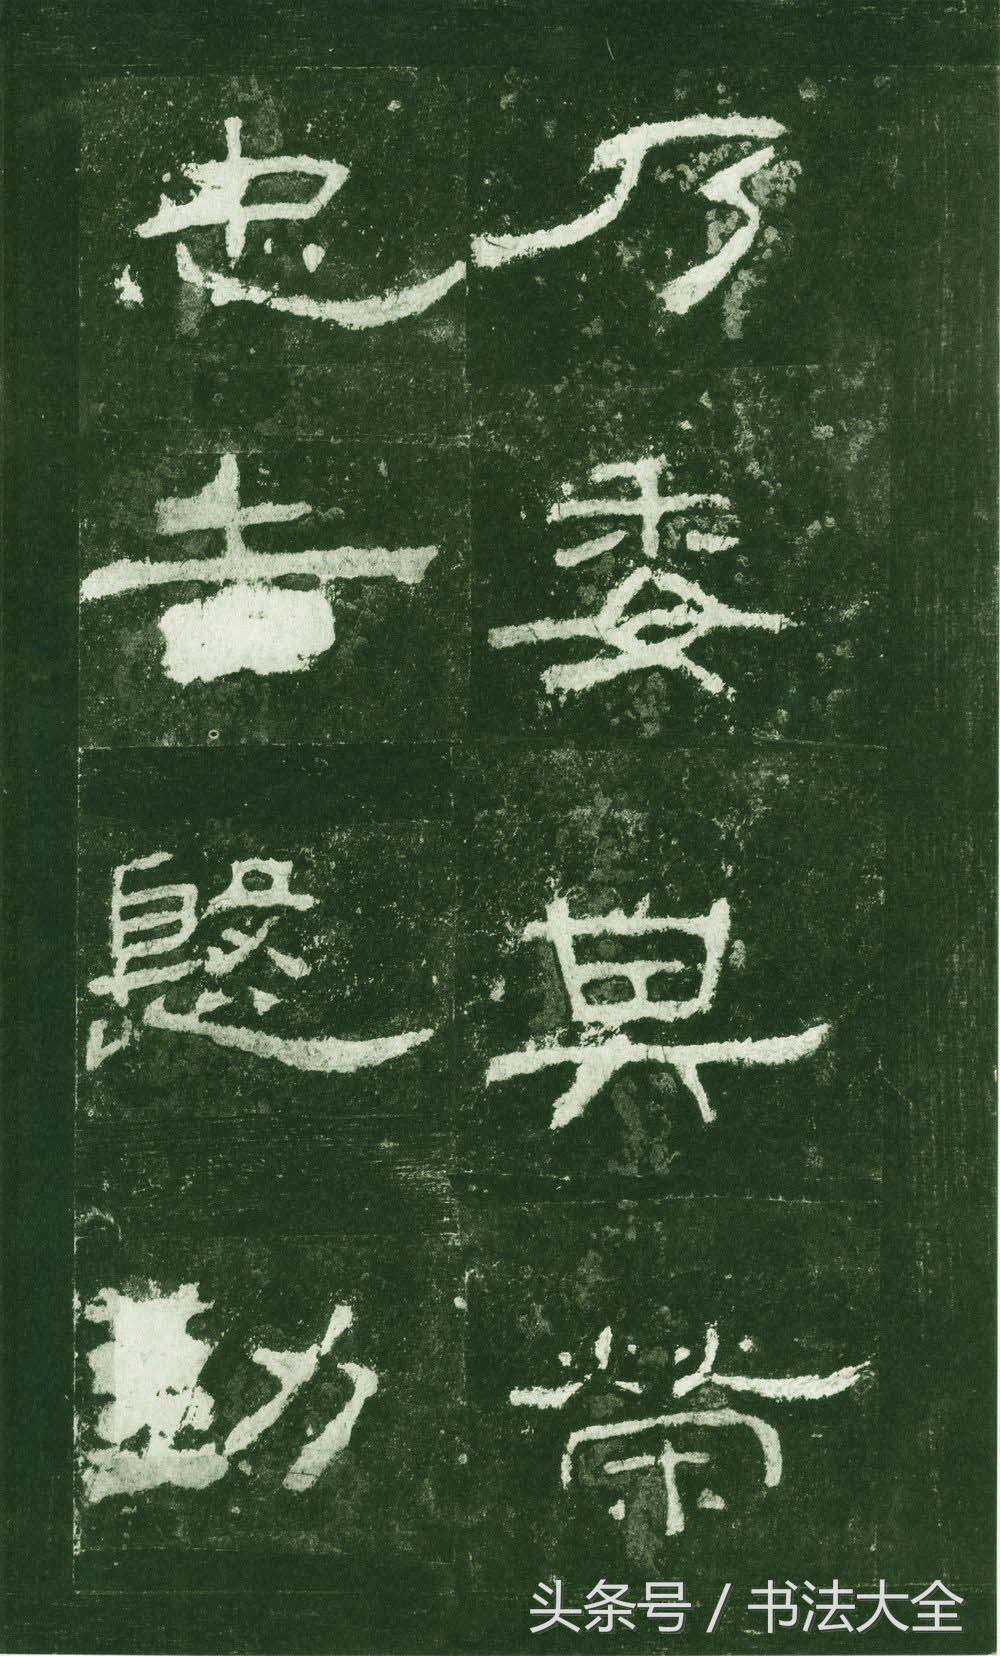 乃委其榮
忠告慇勤
头条号 / 书法大全